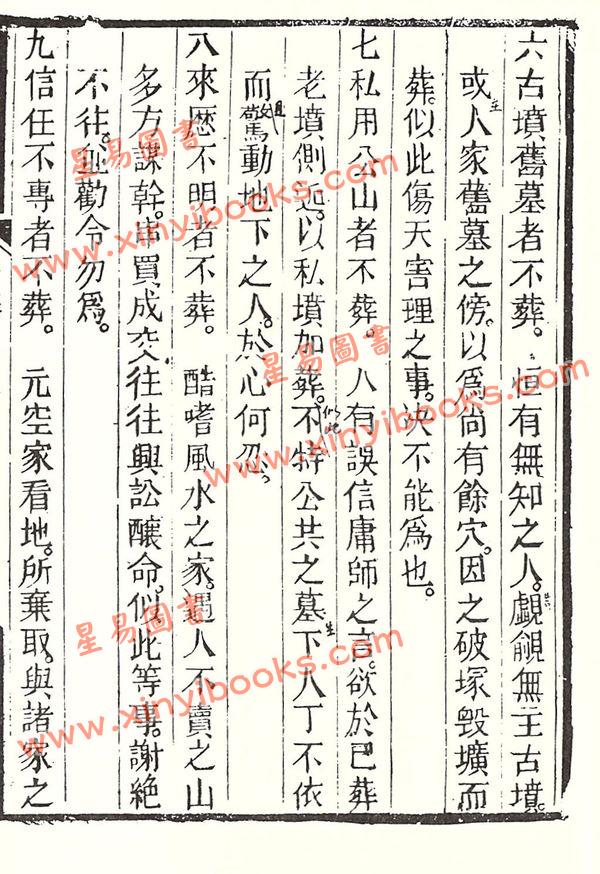 六古墳舊墓者不葬。恒有無知之人。覷覦無主古墳。
或人家舊墓之傍。以爲尚有餘穴。因之破塚毀壙而
葬。似此傷天害理之事。決不能爲也。
七私用公山者不葬。人有誤信庸師之言。欲於已葬
老墳側近。以私墳加葬。不特公共之墓下人丁不依
而驚動地下之人。於心何忍。
八來歷不明者不葬。酷嗜風水之家。遇人不賣之山
多方謀幹。串買成交往往興訟釀命。似此等事。謝絕
不往。勸令勿爲。
九信任不專者不葬。元空家看地。所棄取。與諸家之
星易圖書
www.xinyibooks.com
星易圖書
www.xinyibooks.com
星易圖書
www.xinyibooks.com